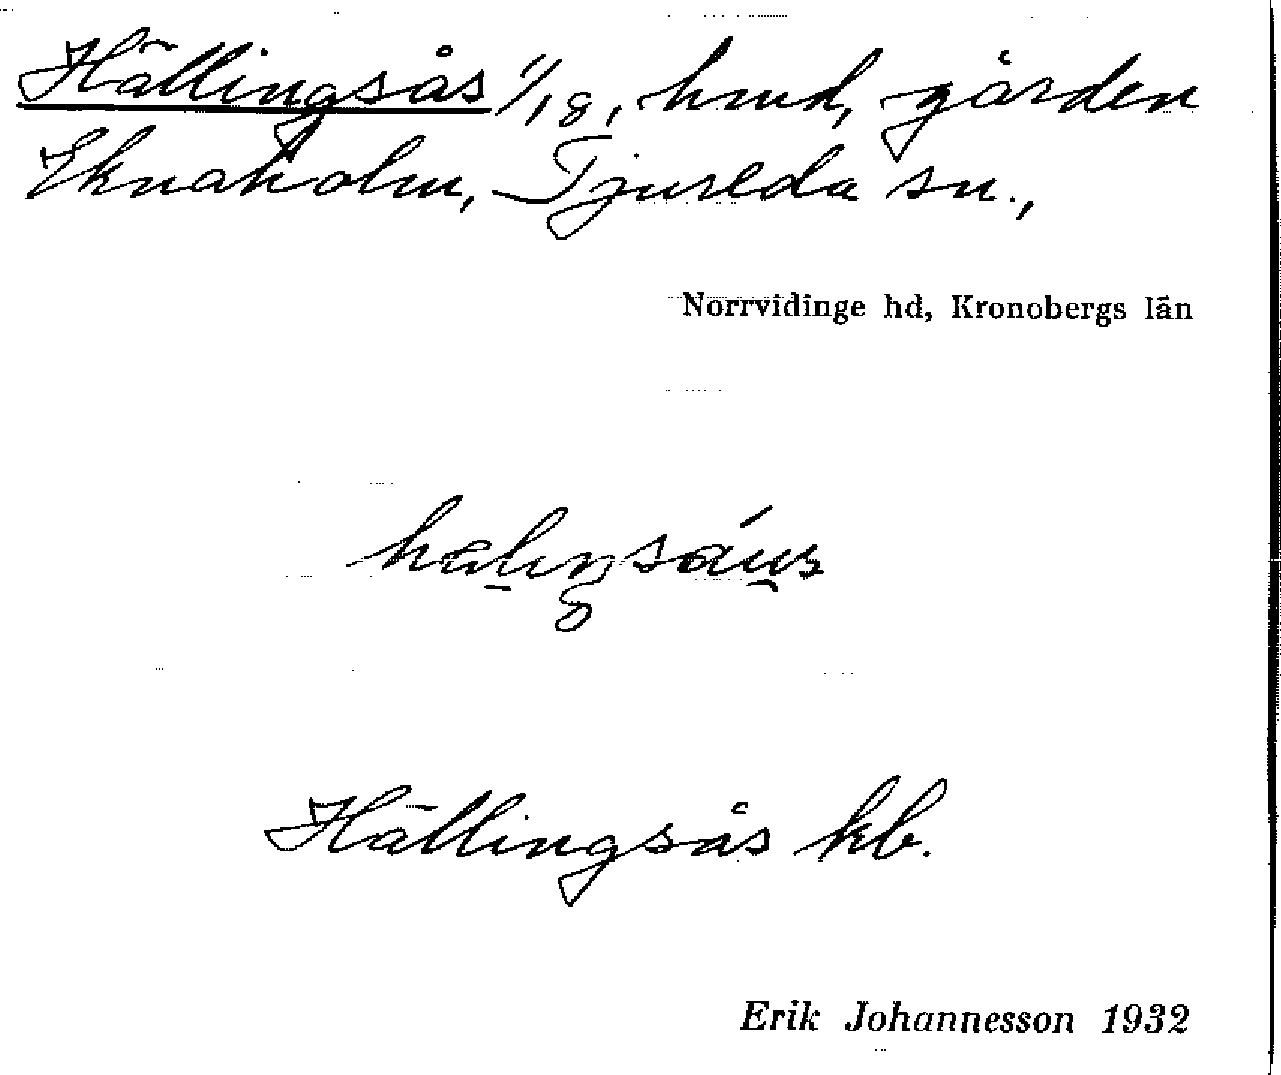 Hällingsås 1/18, hmd, gården
Eknaholm, Tjureda sn.,
Norrvidinge hd, Kronobergs län
Hällingsås kb.
Erik Johannesson 1932